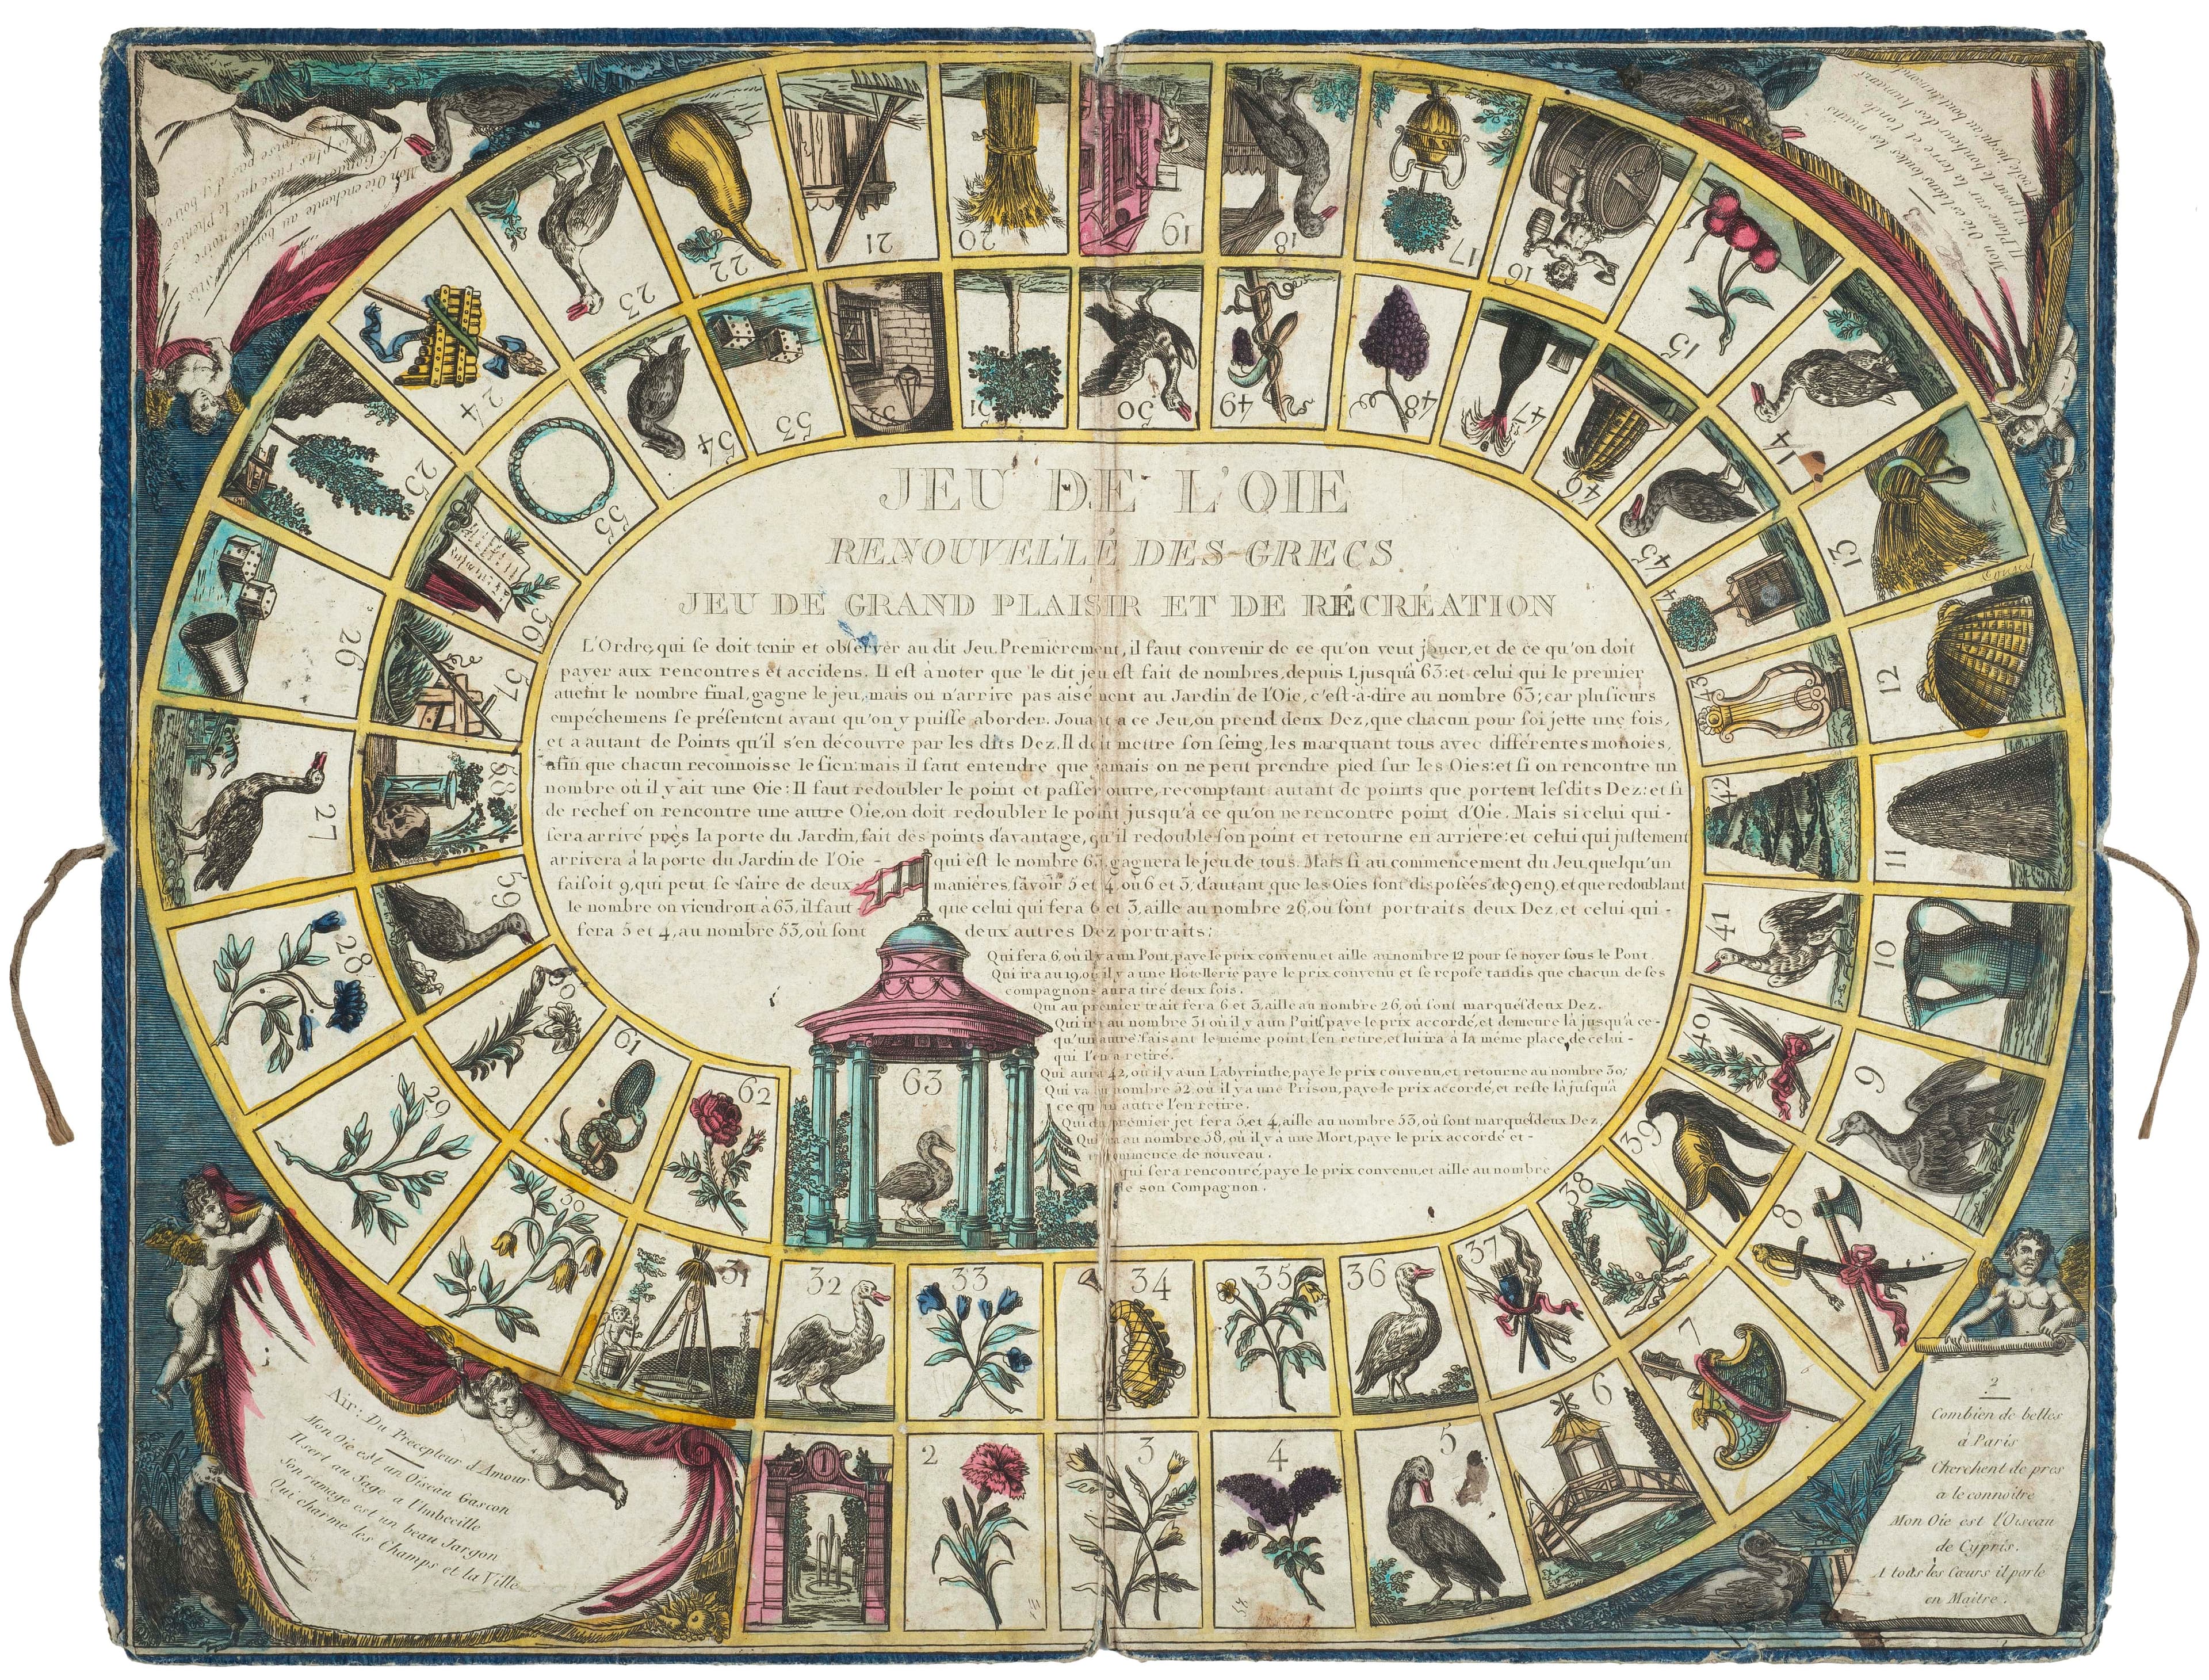 JEU DE L'OIE
RENOUVELLÉ DES GRECS
JEU DE GRAND PLAISIR ET DE RÉCRÉATION
L'Ordre, qui se doit tenir et observer au dit Jeu. Premièrement, il faut convenir de ce qu'on veut jouer, et de ce qu'on doit
payer aux rencontres et accidens. Il est à noter que le dit jeu est fait de nombres, depuis 1, jusqu'à 63: et celui qui le premier
atteint le nombre final, gagne le jeu, mais on n'arrive pas aisement au Jardin de l'Oie, c'est-à-dire au nombre 63; car plusieurs
empéchemens se présentent avant qu'on y puisse aborder. Jouant a ce Jeu, on prend deux Dez, que chacun pour soi jette une fois,
et a autant de Points qu'il s'en découvre par les dits Dez. Il doit mettre son seing, les marquant tous avec différentes monoies,
afin que chacun reconnoisse le sien: mais il faut entendre que jamais on ne peut prendre pied sur les Oies: et si on rencontre un
nombre où il y ait une Oie: Il faut redoubler le point et passer outre, recomptant autant de points que portent lesdits Dez: et si
de rechef on rencontre une autre Oie, on doit redoubler le point jusqu'à ce qu'on ne rencontre point d'Oie. Mais si celui qui -
sera arrivé près la porte du Jardin, fait des points d'avantage, qu'il redouble son point et retourne en arrière: et celui qui justement
arrivera à la porte du Jardin de l'Oie - qui est le nombre 63, gagnera le jeu de tous. Mais si au commencement du Jeu, quelqu'un
faisoit 9, qui peut se faire de deux manières, savoir 5 et 4, où 6 et 3, d'autant que les Oies sont disposées de 9 en 9, et que redoublant
le nombre on viendroit à 63, il faut que celui qui fera 6 et 3, aille au nombre 26, où sont portraits deux Dez, et celui qui -
fera 5 et 4, au nombre 53, où sont deux autres Dez portraits:
Qui fera 6, où il y a un Pont, paye le prix convenu et aille au nombre 12 pour se noyer sous le Pont.
Qui ira au 19, où il y a une Hôtellerie paye le prix convenu et se repose tandis que chacun de ses
compagnons aura tiré deux fois.
Qui au premier trait fera 6 et 3, aille au nombre 26, où sont marqués deux Dez.
Qui ira au nombre 31 où il y a un Puits, paye le prix accordé, et demeure là jusqu'à ce -
qu'un autre faisant le même point, l'en retire, et lui ira à la même place, de celui -
qui l'en a retiré.
Qui aura 42, où il y a un Labyrinthe, paye le prix convenu, et retourne au nombre 30;
Qui va nombre 52, où il y a une Prison, paye le prix accordé, et reste là jusqu'à
ce qu'un autre l'en retire.
Qui du prémier jet fera 5 et 4, aille au nombre 53, où sont marqués deux Dez,
Qui au nombre 58, où il y a une Mort, paye le prix accordé et -
de nouveau.
qui sera rencontré, paye le prix convenu, et aille au nombre
de son Compagnon.
1
2
3
4
5
6
7
8
9
10
11
12
13
14
15
16
17
18
19
20
21
22
23
24
25
26
27
28
29
30
31
32
33
34
35
36
37
38
39
40
41
42
43
45
46
47
48
49
50
51
52
53
54
55
56
57
58
59
60
61
62
63
Air: Du Precepteur d'Amour
Mon Oie est un Oiseau Gascon
Il sert au Sage a l'Imbecille
Son ramage est un beau Jargon
Qui charme les Champs et la Ville
2
Combien de belles
à Paris
Cherchent de pres
a le connoitre
Mon Oie est l'Oiseau
de Cypris.
A tous les Cœurs il parle
en Maitre.
3
Mon Oie est dans toutes les mains
Il Plane sur la terre et l'onde